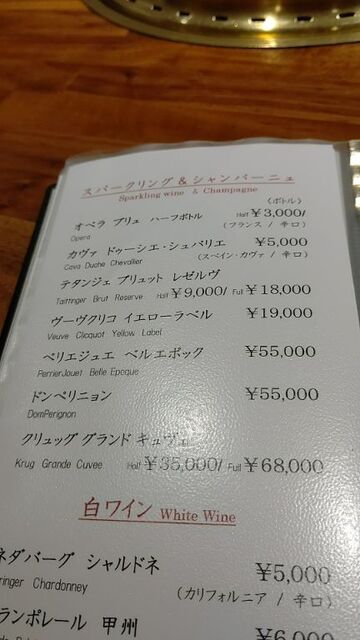 スパークリング&シャンパーニュ
Sparkling wine & Champagne
(ボトル)
オペラ ブリュ ハーフボトル Half ¥3,000/
Opera (フランス / 辛口)
カヴァ ドゥーシエ・シュバリエ ¥5,000
Cava Duche Chevalier (スペイン・カヴァ / 辛口)
テタンジェ ブリュット レゼルヴ
Taittinger Brut Reserve Half ¥9,000/ Full ¥18,000
ヴーヴクリコ イエローラベル ¥19,000
Veuve Clicquot Yellow Label
ペリエジュエ ベルエポック ¥55,000
PerrierJouet Belle Epoque
ドンペリニョン ¥55,000
DomPerignon
クリュッグ グランド キュヴェ
Krug Grande Cuvee Half ¥35,000/ Full ¥68,000
白ワイン White Wine
ネダバーグ シャルドネ ¥5,000
ringer Chardonney (カリフォルニア / 辛口)
ランポレール 甲州 ¥6,000